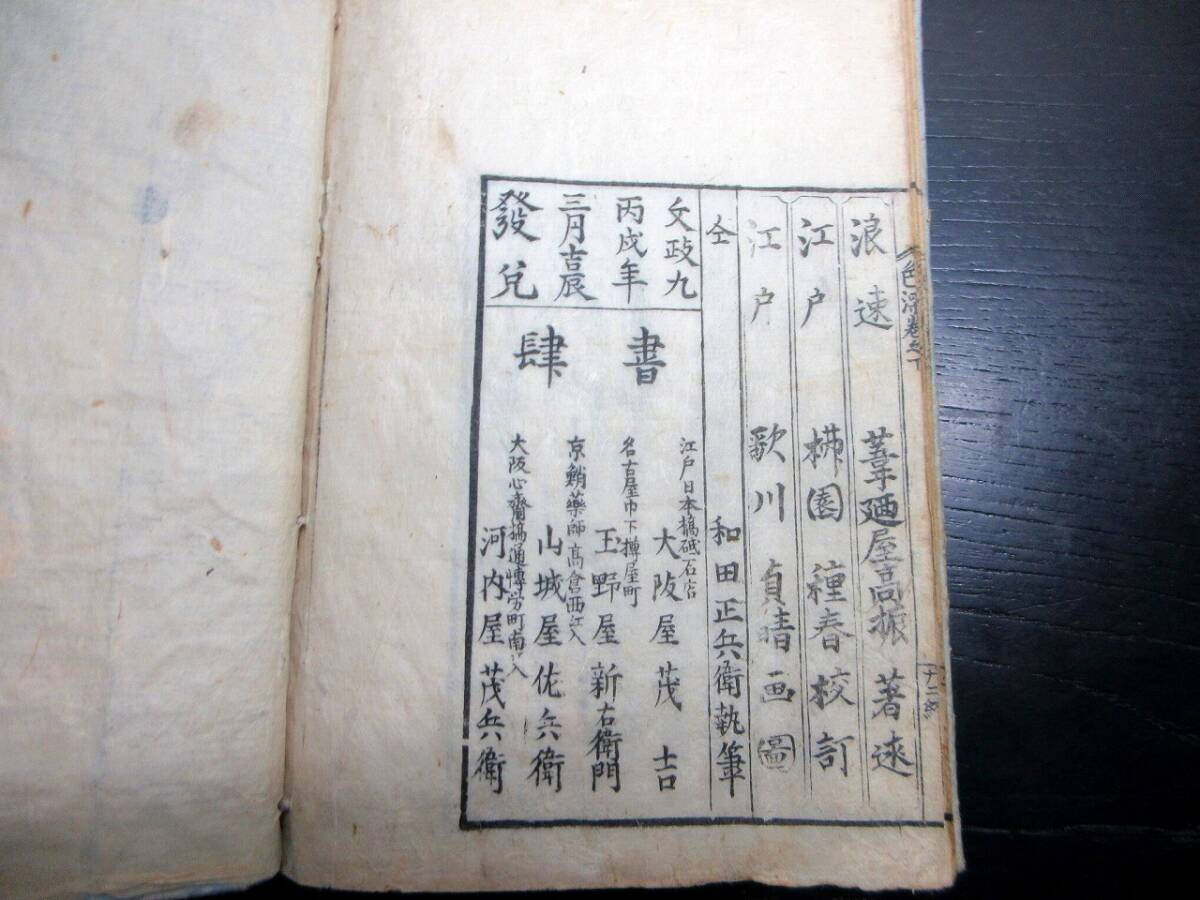 色深巻之下
十二終
浪速 葦廼屋高振 著述
江戸 梻園種春 校訂
江戸 歌川貞晴画
仝 和田正兵衛執筆
文政九
丙戌年
三月吉辰
發兌
書肆
江戸日本橋砥石店
大阪屋茂吉
名古屋巾下樽屋町
玉野屋新右衛門
京蛸薬師高倉西江入
山城屋佐兵衛
大阪心齋橋通博労町南江入
河内屋茂兵衛